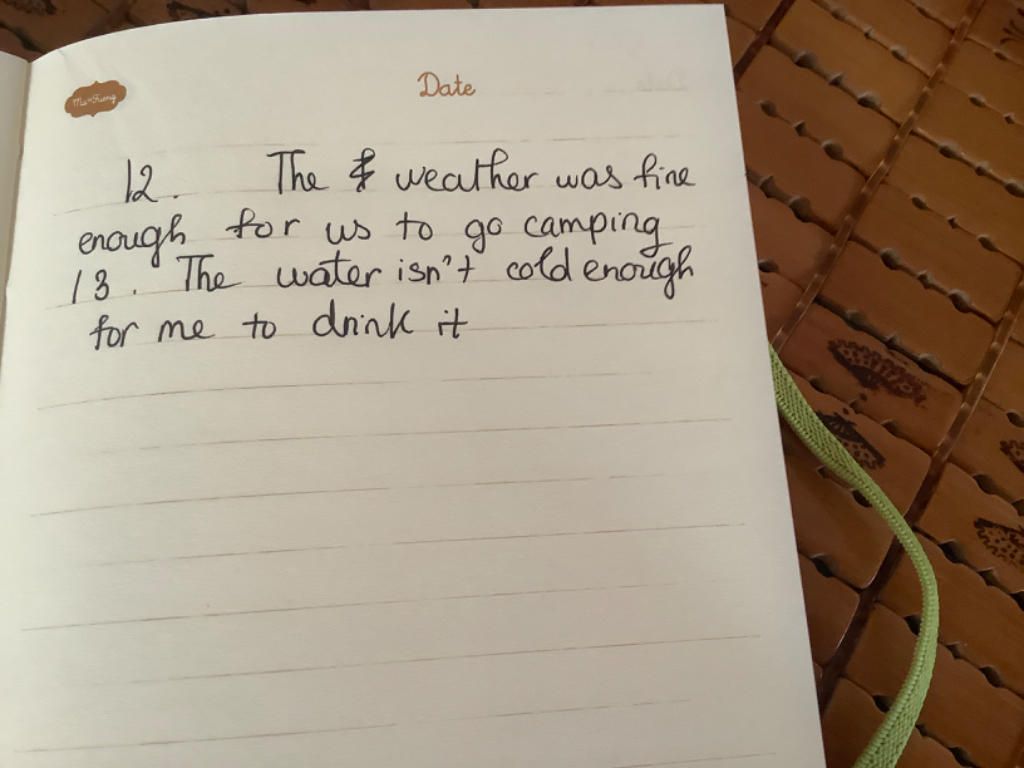 Date
12. The weather was fine
enough for us to go camping
13. The water isn't cold enough
for me to drink it